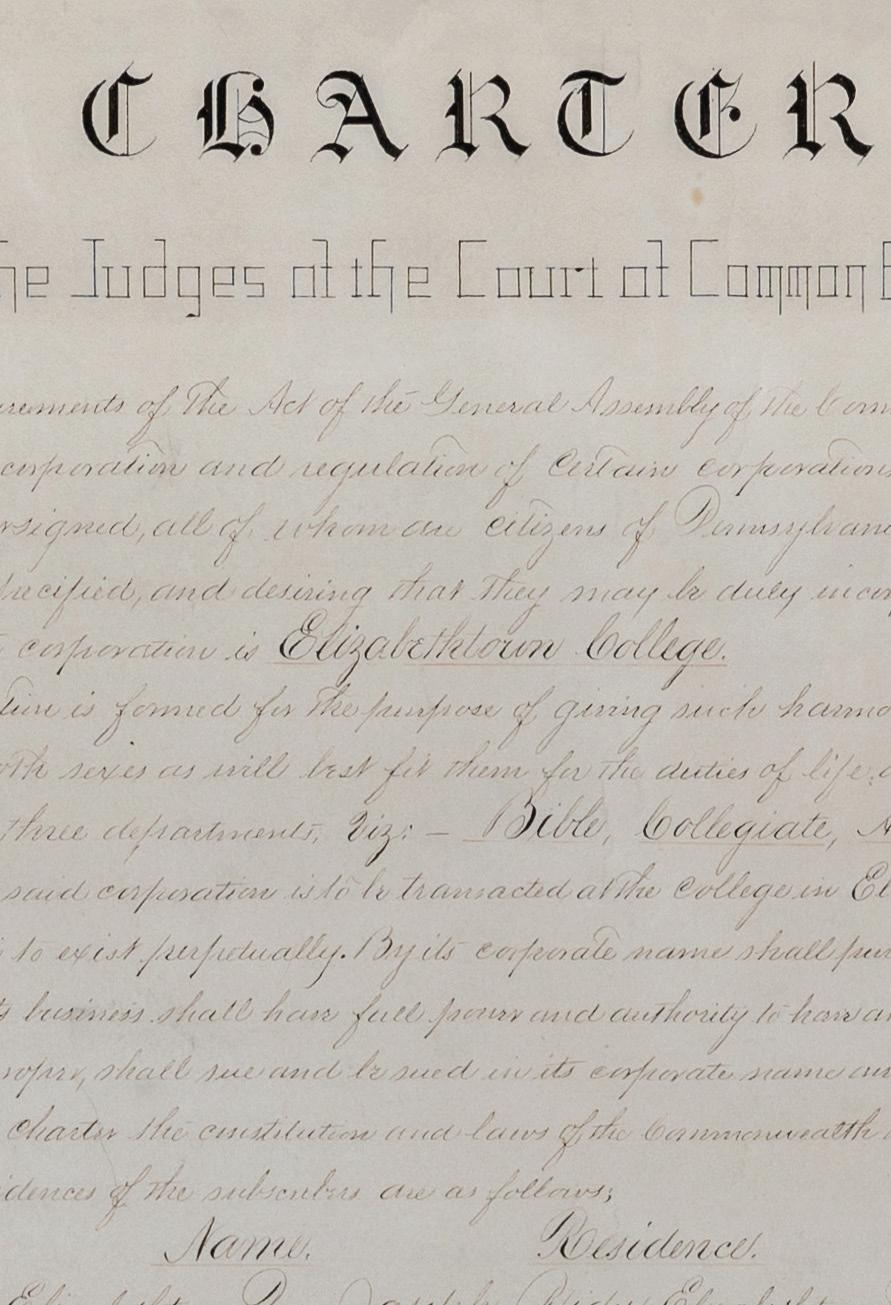 CHARTER
he Judges of the Court of Common P
irements of the Act of the General Assembly of the Com
corporation and regulation of certain corporations
rsigned, all of whom are citizens of Pennsylvani
pecified, and desiring that they may be duly incor
corporation is Elizabethtown College.
tion is formed for the purpose of giving such harmo
oth sexes as will best fit them for the duties of life;
three departments, Viz: – Bible, Collegiate, N
said corporation is to be transacted at the College in El
to exist perpetually. By its corporate name shall pur
ts business shall have full power and authority to have an
shall sue and be sued in its corporate name an
charter the constitution and laws of the Commonwealth
idences of the subscribers are as follows;
Name. Residence.